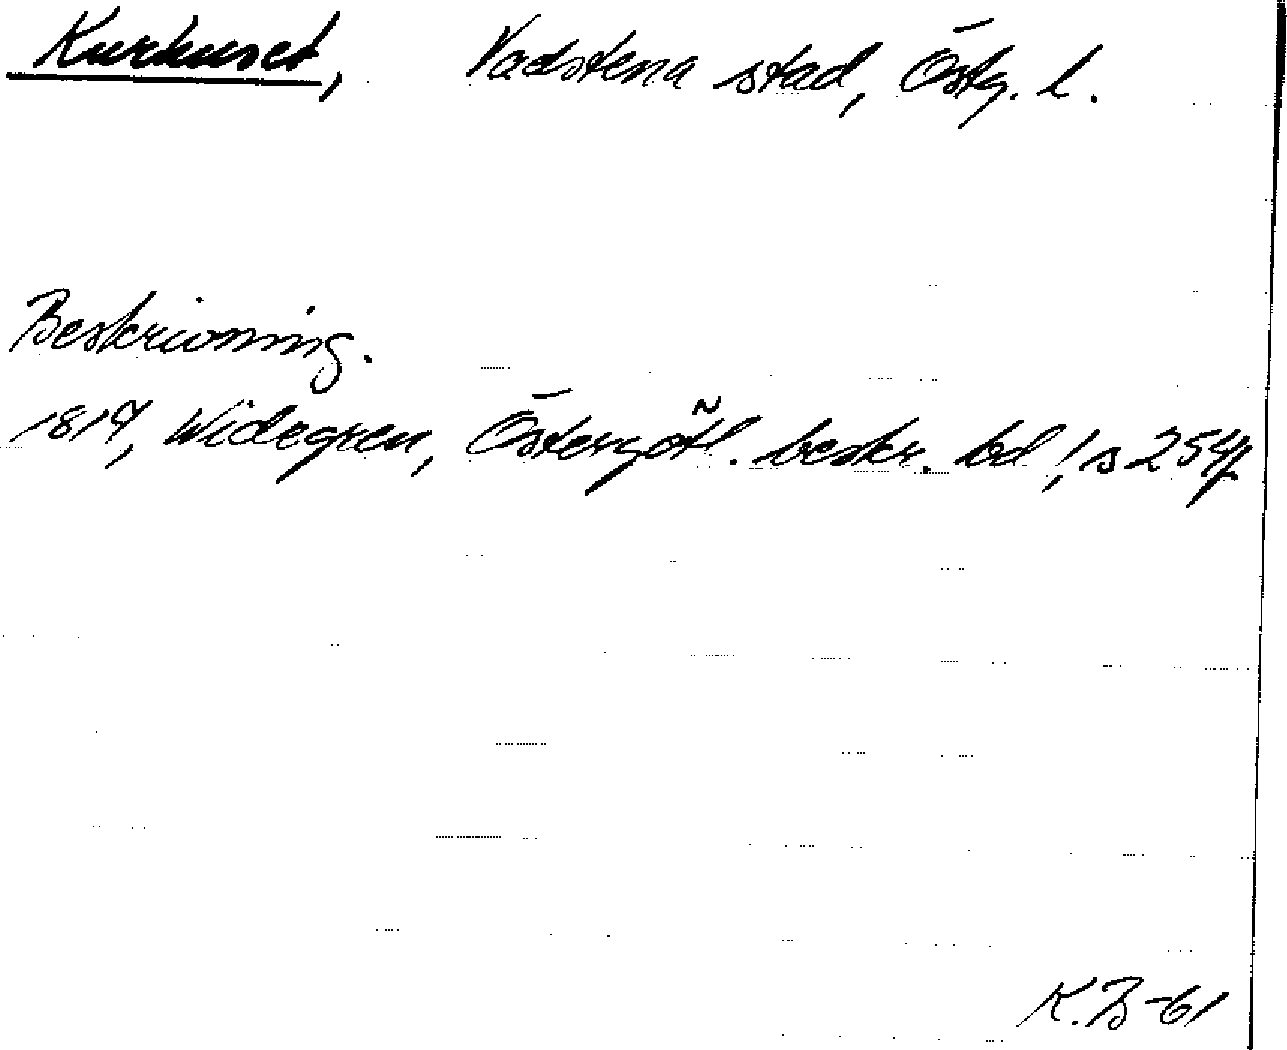 Kurhuset, Vadstena stad, Östg. l.
Beskrivning.
1817, Widegren, Östergötl. beskr. bd 1, s 254f
K.B-61